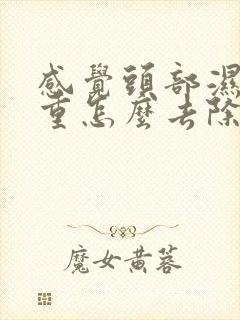 感覺頭部濕
重怎麼去除
魔女黄蓉